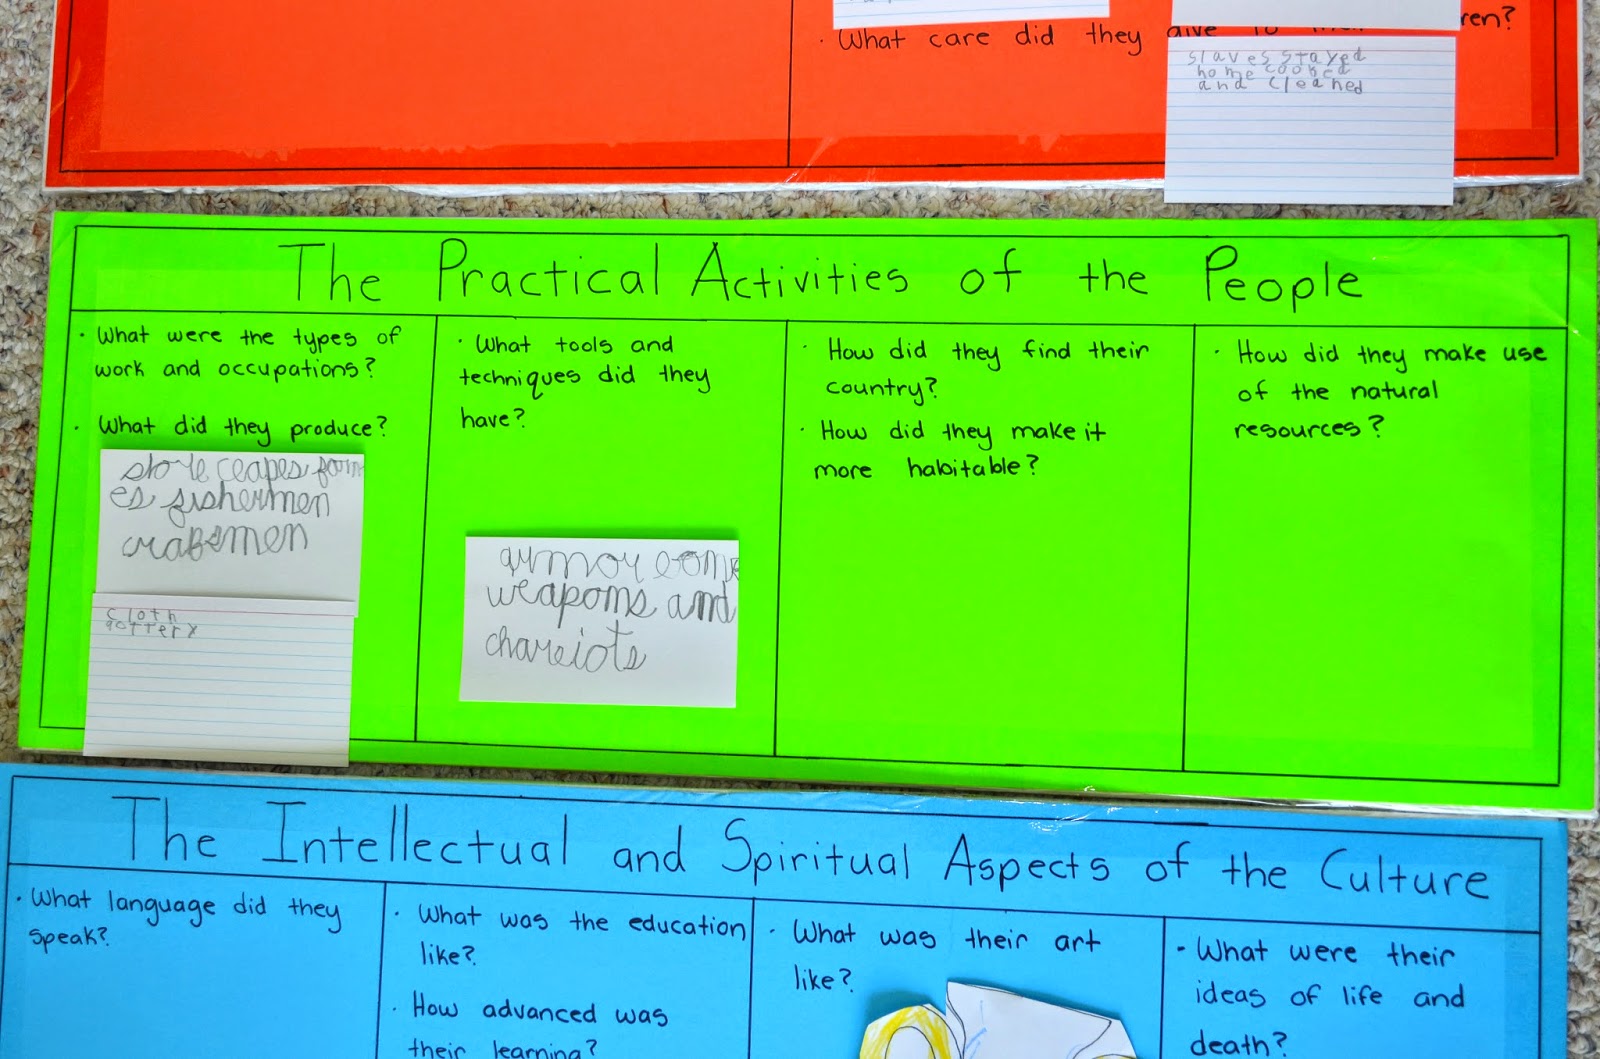 What care did they give to their children?
slaves stayed
home cooked
and cleaned
The Practical Activities of the People
What were the types of
work and occupations?
What did they produce?
fishermen
cloth
What tools and
techniques did they
have?
armor
weapoms and
chareiots
How did they find their
country?
How did they make it
more habitable?
How did they make use
of the natural
resources?
The Intellectual and Spiritual Aspects of the Culture
What language did they
speak?
What was the education
like?
How advanced was
their learning?
What was their art
like?
What were their
ideas of life and
death?